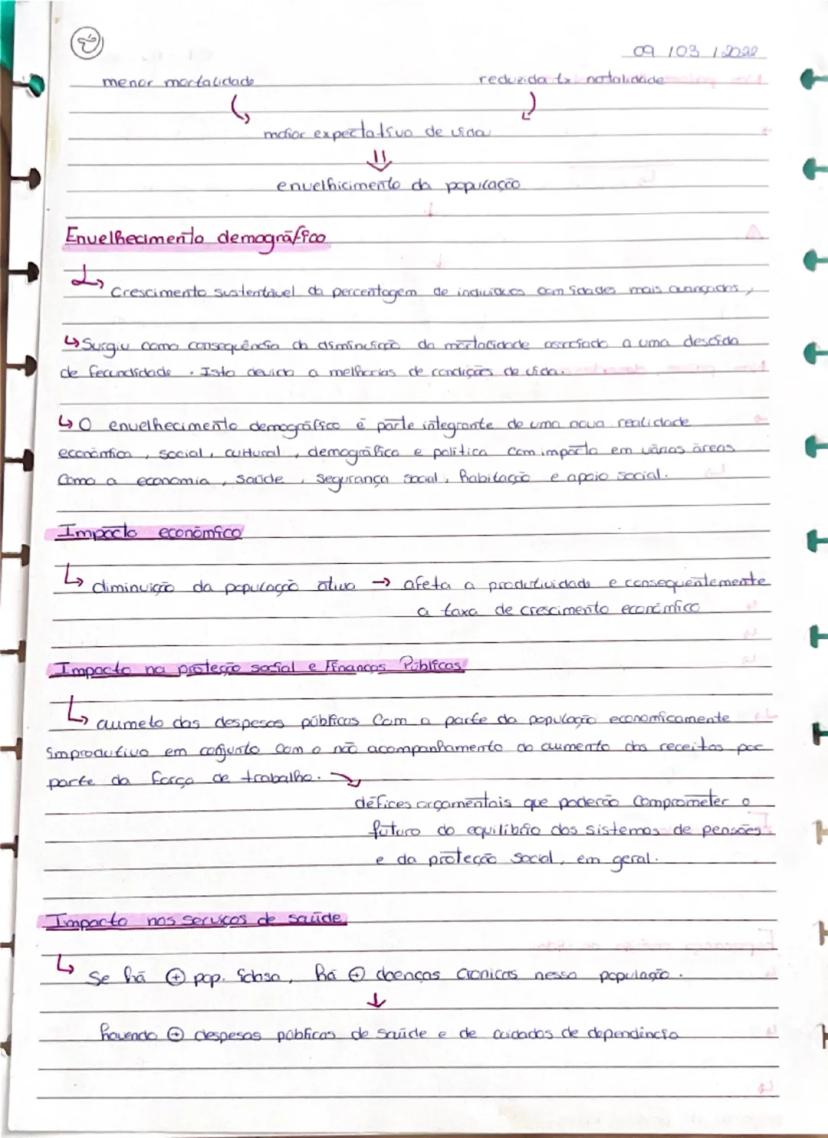 09 / 03 / 2022
menor mortalidade reduzida tx natalidade
maior expectativa de vida
envelhicimento da população
Envelhecimento demográfico
↳ Crescimento sustentável da percentagem de individuos com idades mais avançadas,
↳ Surgiu como consequência da diminuição da mortalidade associado a uma descida
de fecundidade. Isto devido a melhorias de condições de vida.
↳ O envelhecimento demográfico é parte integrante de uma nova realidade
económica, social, cultural, demográfica e política com impacto em várias áreas
como a economia, saúde, segurança social, habitação e apoio social.
Impacto económico
↳ diminuição da população ativa → afeta a produtividade e consequentemente
a taxa de crescimento económico
Impacto na proteção social e Finanças Públicas
↳ aumeto das despesas públicas com a parte da população economicamente
improdutiva em conjunto com o não acompanhamento do aumento das receitas por
parte da força de trabalho.
défices orçamentais que poderão comprometer o
futuro do equilíbrio dos sistemas de pensões
e da proteção social, em geral.
Impacto nos serviços de saúde
↳ Se há ⊕ pop. idosa, há ⊕ doenças cronicas nessa população.
↓
havendo ⊕ despesas públicas de saúde e de cuidados de dependência